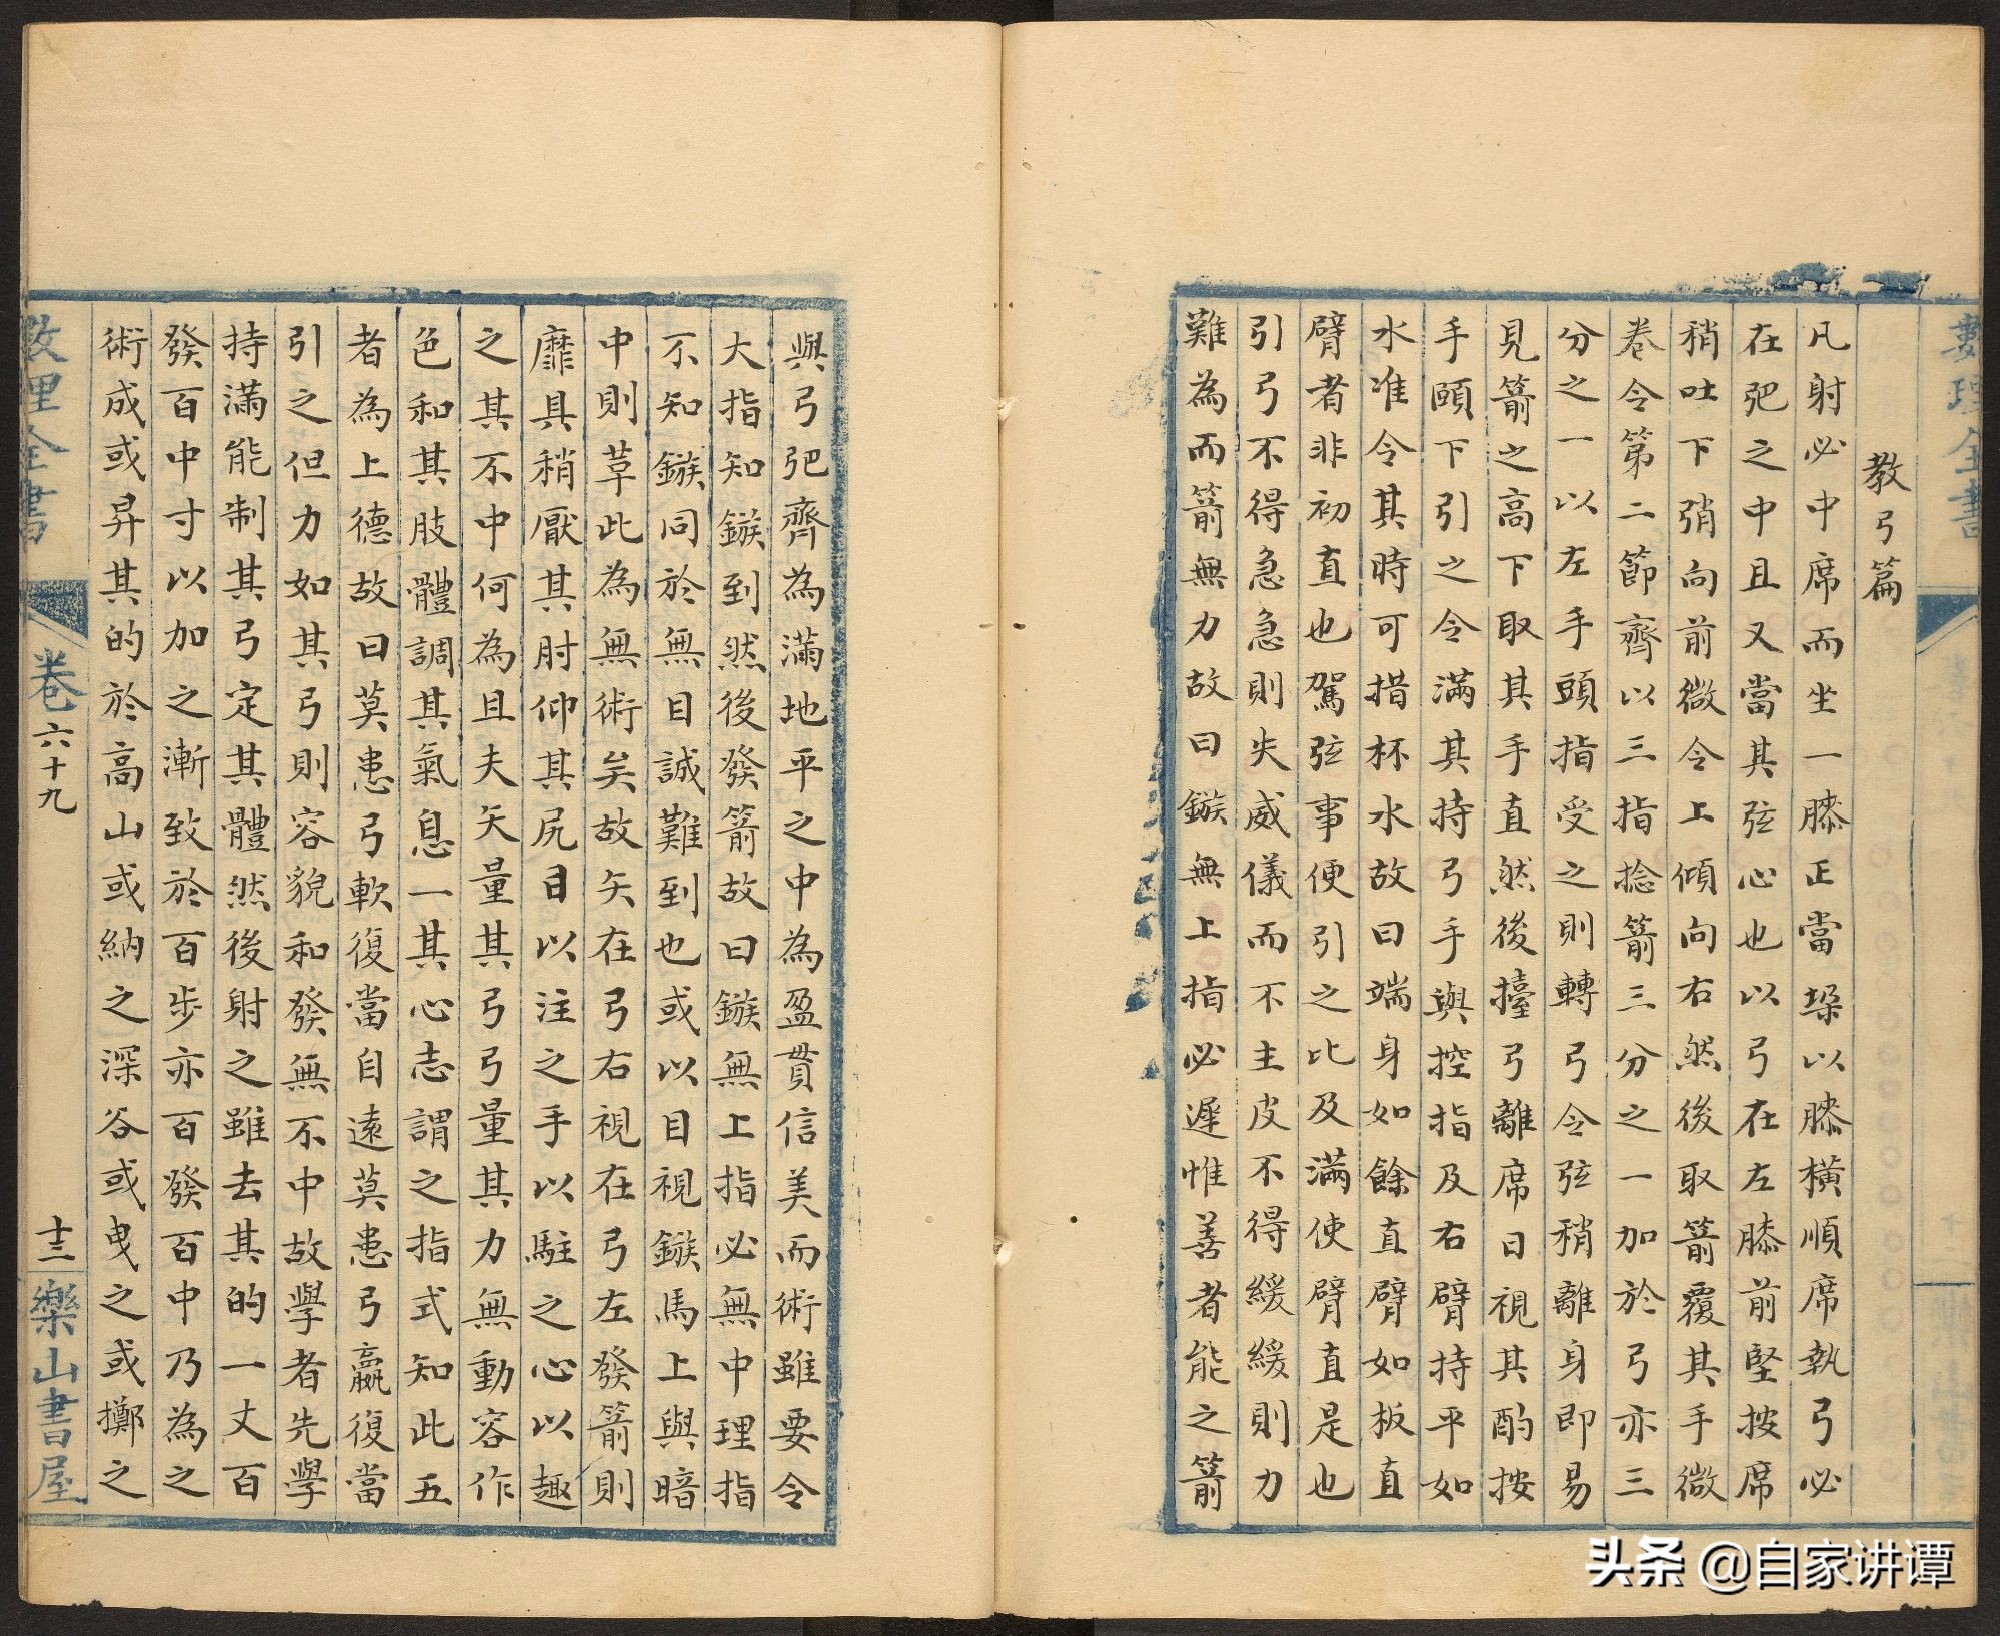 教弓篇
凡射必中席而坐一膝正當垛以膝橫順席執弓必
在弝之中且又當其弦心也以弓在左膝前堅按席
稍吐下弰向前微令上傾向右然後取箭覆其手微
卷令第二節齊以三指捻箭三分之一加於弓亦三
分之一以左手頭指受之則轉弓令弦稍離身即易
見箭之高下取其手直然後擡弓離席目視其酌按
手頤下引之令滿其持弓手與控指及右臂持平如
水准令其時可措杯水故曰端身如餘直臂如板直
臂者非初直也駕弦事便引之比及滿使臂直是也
引弓不得急急則失威儀而不主皮不得緩緩則力
難為而箭無力故曰鏃無上指必遲惟善者能之箭
與弓弝齊為滿地平之中為盈貫信美而術雖要令
大指知鏃到然後發箭故曰鏃無上指必無中理指
不知鏃同於無目誠難到也或以目視鏃馬上與暗
中則草此為無術矣故矢在弓右視在弓左發箭則
靡具稍厭其肘仰其尻目以注之手以駐之心以趣
之其不中何為且夫矢量其弓弓量其力無動容作
色和其肢體調其氣息一其心志謂之指式知此五
者為上德故曰莫患弓軟復當自遠莫患弓羸復當
引之但力如其弓則容貌和發無不中故學者先學
持滿能制其弓定其體然後射之雖去其的一丈百
發百中寸以加之漸致於百步亦百發百中乃為之
術成或昇其的於高山或納之深谷或曳之或擲之
卷六十九
十三
樂山書屋
头条 @自家讲谭